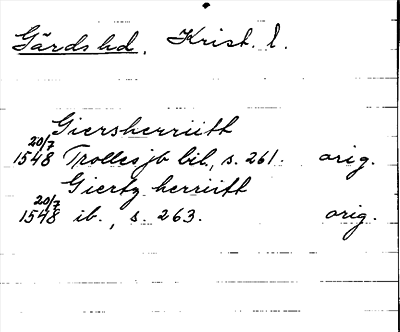 Gärds hd. Krist. l.
Giersherriitt
20/7
1548 Trollesjb bil., s. 261. orig.
Giertz herriitt
20/7
1548 ib., s. 263. orig.